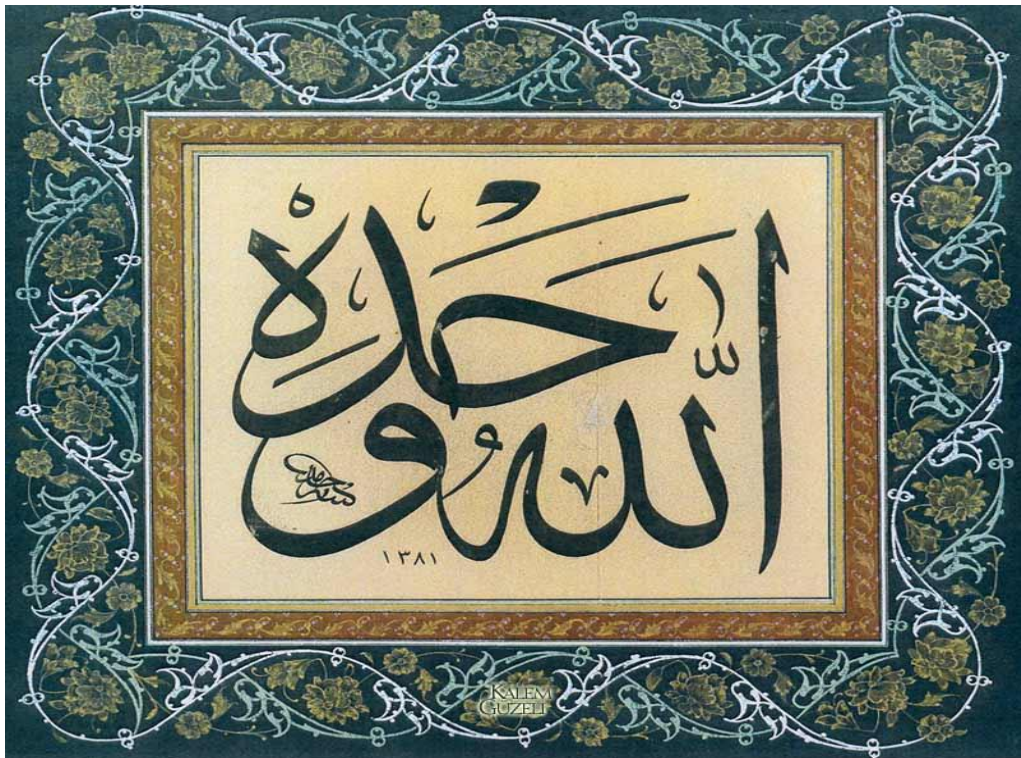 الله وحده
١٣٨١
KALEM
GÜZELİ